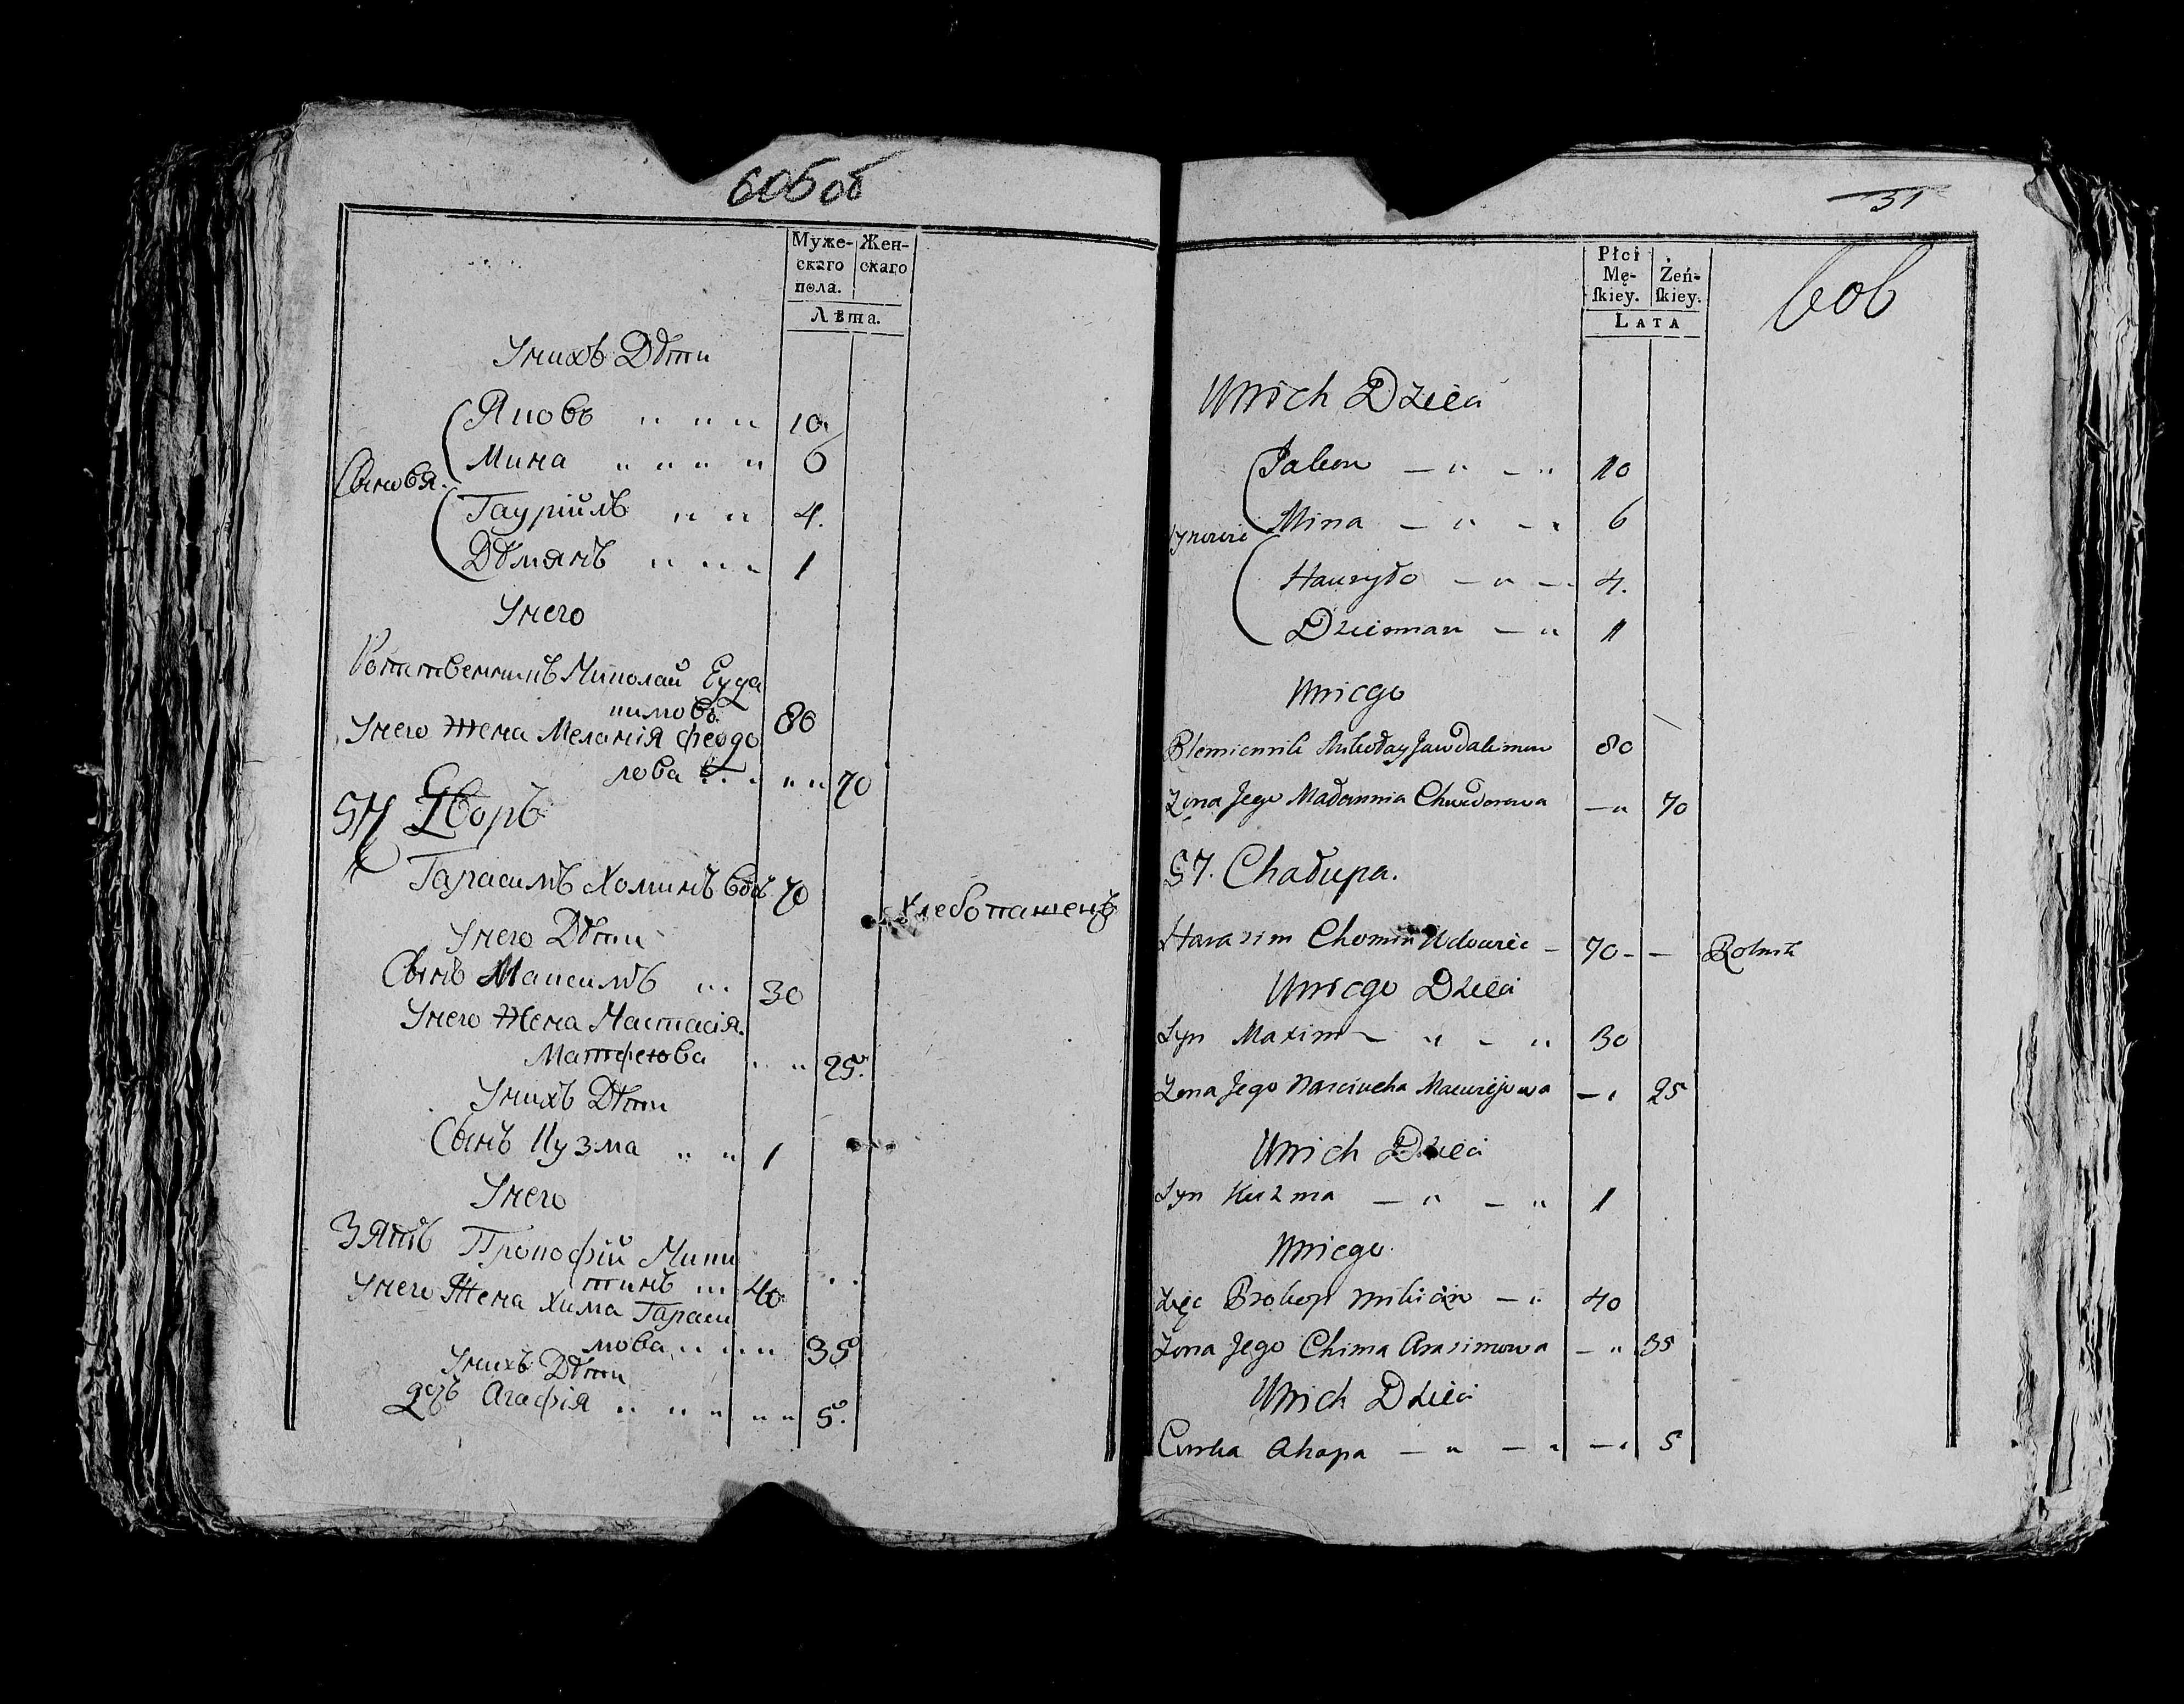 605 об
Муже-
скаго
пола.
Жен-
скаго
Лѣта.
Унихъ Дѣти
Яковъ 10
Мина 6
Сыновя.
Гауріилъ 4.
Дѣмянъ 1
Унего
Николай Еуда
кимовъ 80
Унего Жена Меланія Феодо
рова 70
57 Дворъ
Гарасимъ Хоминъ вдвъ 70 Хлебопашецъ
Унего Дѣти
Сынъ Максимъ 30
Унего Жена Настасія
Матфеюва 25.
Унихъ Дѣти
Сынъ Кузма 1
Унего
Зять Прокофій Мики
тинъ 40
Унего Жена Хима Гараси
мова 35
Унихъ Дѣти
дочь Агафія 5.
31
606
Płci
Mę-
ſkiey.
Żeń-
ſkiey.
LATA
Unich Dzieci
Jakow 10
Mina 6
Synowie
Hauryło 4.
Dziemian 1
Uniego
Plemiennik Mikołay Jawdakimow 80
Zona Jego Małannia Chwiedorowa 70
57. Chałupa.
Harasim Chomin Wdowiec 70 Rolnik
Uniego Dzieci
Syn Maxim 30
Zona Jego Nasciucha Maciejowa 25
Unich Dzieci
Syn Kuzma 1
Uniego
Zięc Prokop Mikicin 40
Zona Jego Chima Arasimowa 35
Unich Dzieci
Curka Ahapa 5